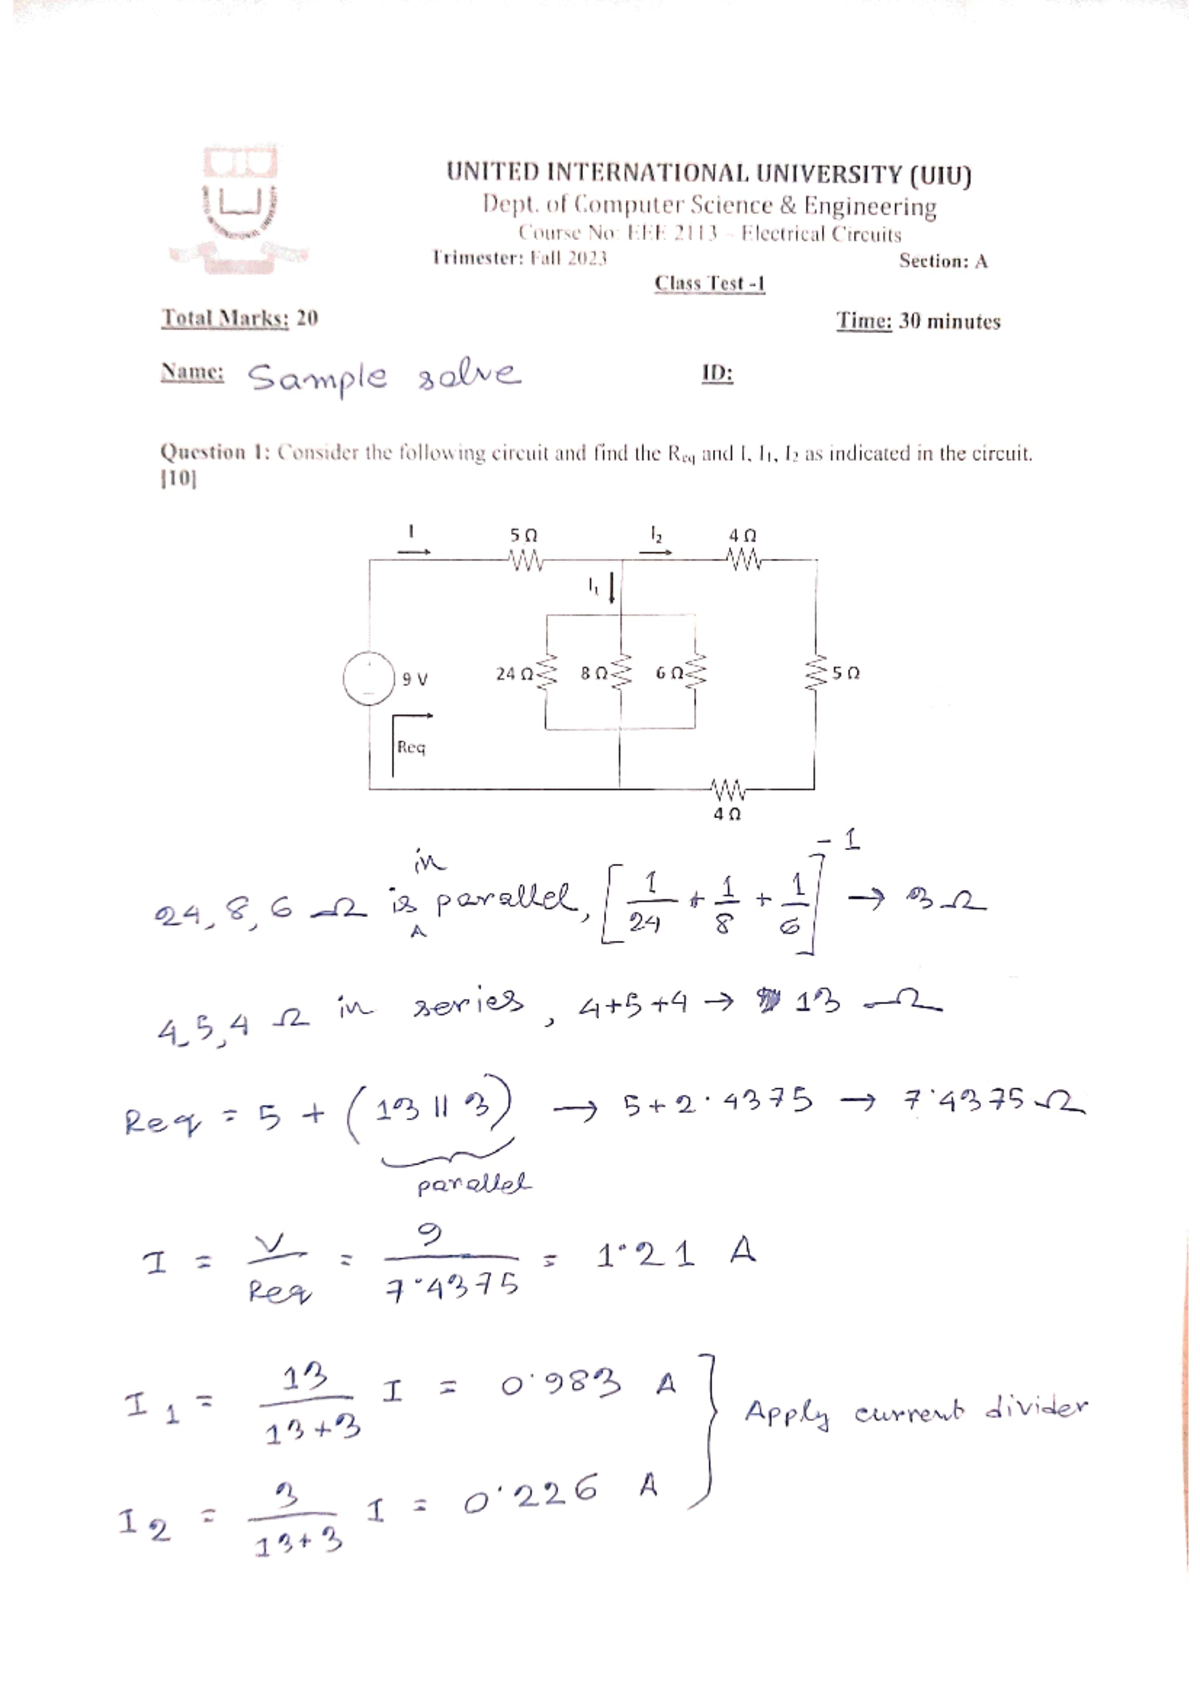 UNITED INTERNATIONAL UNIVERSITY (UIU)
Dept. of Computer Science & Engineering
Course No: EEE 2113 – Electrical Circuits
Trimester: Fall 2023 Section: A
Class Test -1
Total Marks: 20 Time: 30 minutes
Name: Sample solve ID:
Question 1: Consider the following circuit and find the Req and I, I1, I2 as indicated in the circuit.
[10]
I 5 Ω I2 4 Ω
I1
9 V 24 Ω 8 Ω 6 Ω 5 Ω
Req
4 Ω
24, 8, 6 Ω is in parallel, [1/24 + 1/8 + 1/6]^-1 → 3 Ω
4, 5, 4 Ω in series, 4+5+4 → 13 Ω
Req = 5 + (13 || 3) → 5 + 2.4375 → 7.4375 Ω
parallel
I = V/Req = 9/7.4375 = 1.21 A
I1 = 13/13+3 I = 0.983 A
Apply current divider
I2 = 3/13+3 I = 0.226 A